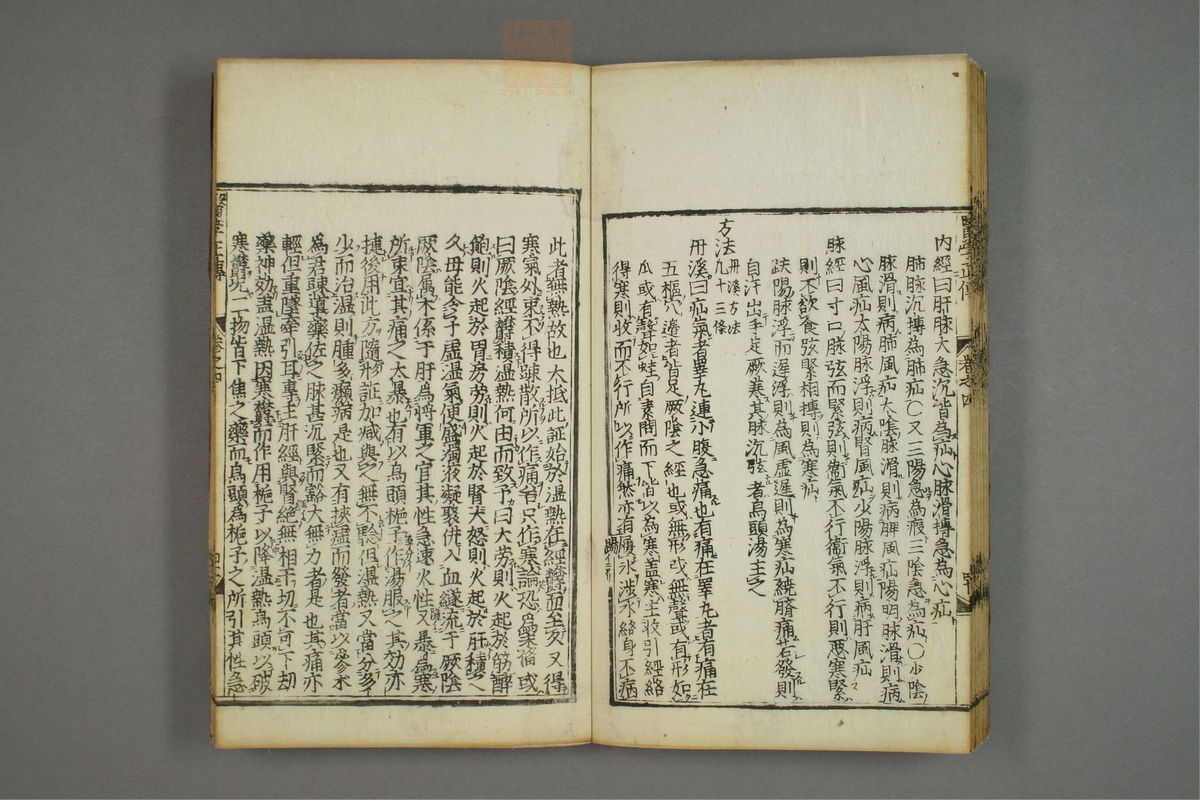 內經曰肝脉大急沉皆為疝心脉滑搏急為心疝
肺脉沉搏為肺疝〇又三陽急為瘕三陰急為疝〇少陰
脉滑則病肺風疝太陰脉滑則病脾風疝陽明脉滑則病
心風疝太陽脉浮則病腎風疝少陽脉浮則病肝風疝
脉經曰寸口脉弦而緊弦則衞氣不行衞氣不行則惡寒緊
則不欲食弦緊相搏則為寒疝
趺陽脉浮而遲浮則為風虛遲則為寒疝繞臍痛若發則
自汗出手足厥寒其脉沉弦者烏頭湯主之
方法
丹溪方法
九十三條
丹溪曰疝氣者睪丸連小腹急痛也有痛在睪丸者有痛在
五樞穴邉者皆足厥陰之經也或無形或無聲或有形如
瓜或有聲如蛙自素問而下皆以為寒盖寒主收引經絡
得寒則收而不行所以作痛然亦有履氷涉水終身不病
醫學正傳
卷之四
此者無熱故也大抵此証始於湿熱在經欝而至久又得
寒氣外束不得踈散所以作痛若只作寒論恐為未備或
曰厥陰經欝積湿熱何由而致予曰大劳則火起於筋醉
飽則火起於胃房劳則火起於腎大怒則火起於肝積之
久母能令子虛湿氣便盛濁液凝聚併入血隧流于厥陰
厥陰属木係于肝為將軍之官其性急速火性又暴為寒
所束宜其痛之太暴也有以烏頭梔子作湯服之其効亦
捷後用此方隨形証加减與之無不驗但湿熱又當分多
少而治湿則腫多癩病是也又有挾虛而發者當以參朮
為君踈導藥佐之脉甚沉緊而豁大無力者是也其痛亦
輕但重墜牽引耳專主肝經與腎絕無相干切不可下劫
藥神効盖湿熱因寒欝而作用梔子以降湿熱烏頭以破
寒欝况二物皆下焦之藥而烏頭為梔子之所引其性急